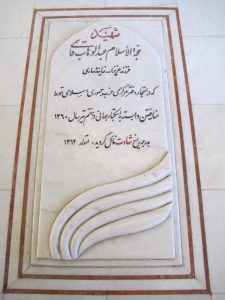 شهید
حجة الاسلام عبدالوهاب قاسمی
فرزند عزیزالله، نماینده ساری
که در انفجار دفتر مرکزی حزب جمهوری اسلامی توسط
منافقین وابسته به استکبار جهانی در هفتم تیر سال ۱۳۶۰
به درجه رفیع شهادت نائل گردید، متولد ۱۳۱۲